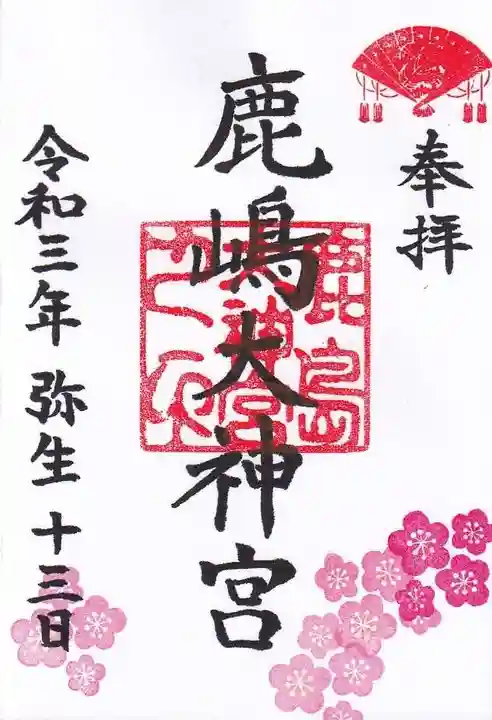 奉拝
鹿嶋大神宮
令和三年 弥生 十三日